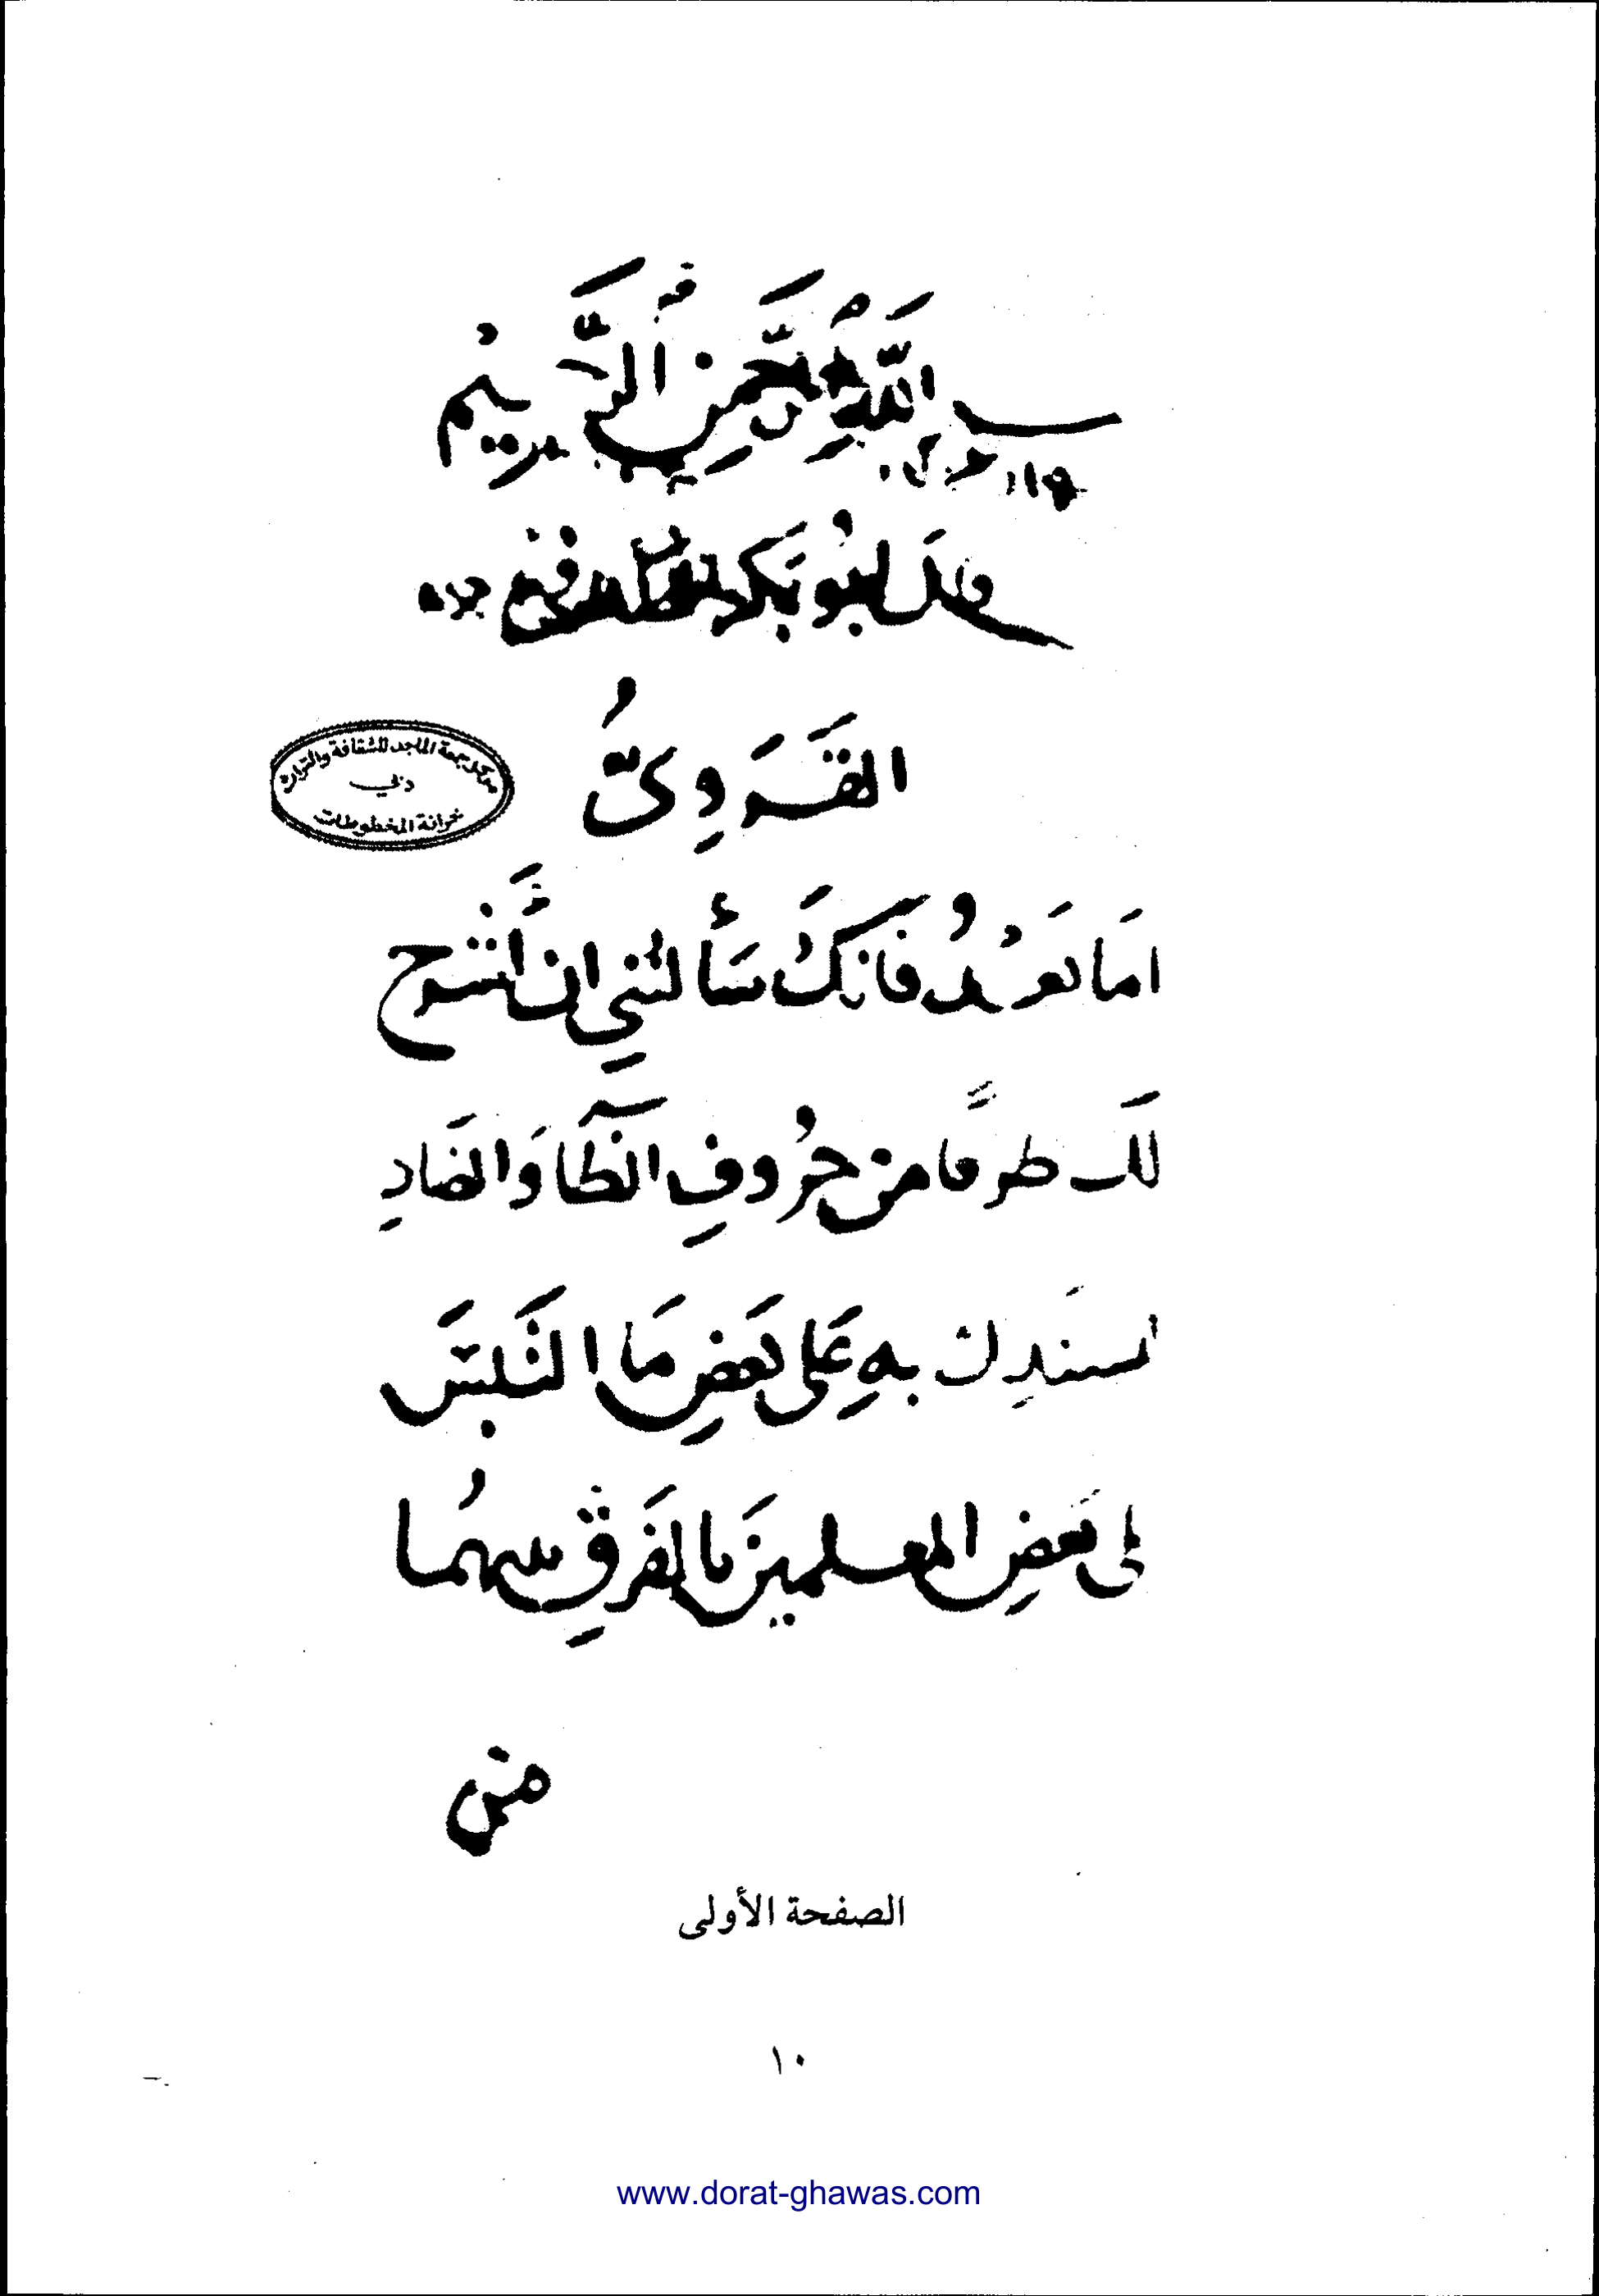 بسم اللَّهِ الرَّحْمَنِ الرَّحِيمِ
قال أبُو بَكر
القَرَوِىُّ
مركز جمعة الماجد للثقافة والتراث
دبي
خزانة المخطوطات
امَا بَعْدُ فَانكَ سَألتَنِي ان أَشْرح
لكَ طرفًا من حُروفِ الظَّآ وَالضَادِ
لتستدِل بهِ عَلى بَعضِ مَا التَبسَ
على بَعضِ المعلمينَ بالفَرقِ بينهُما
من
الصفحة الأولى
١٠
www.dorat-ghawas.com